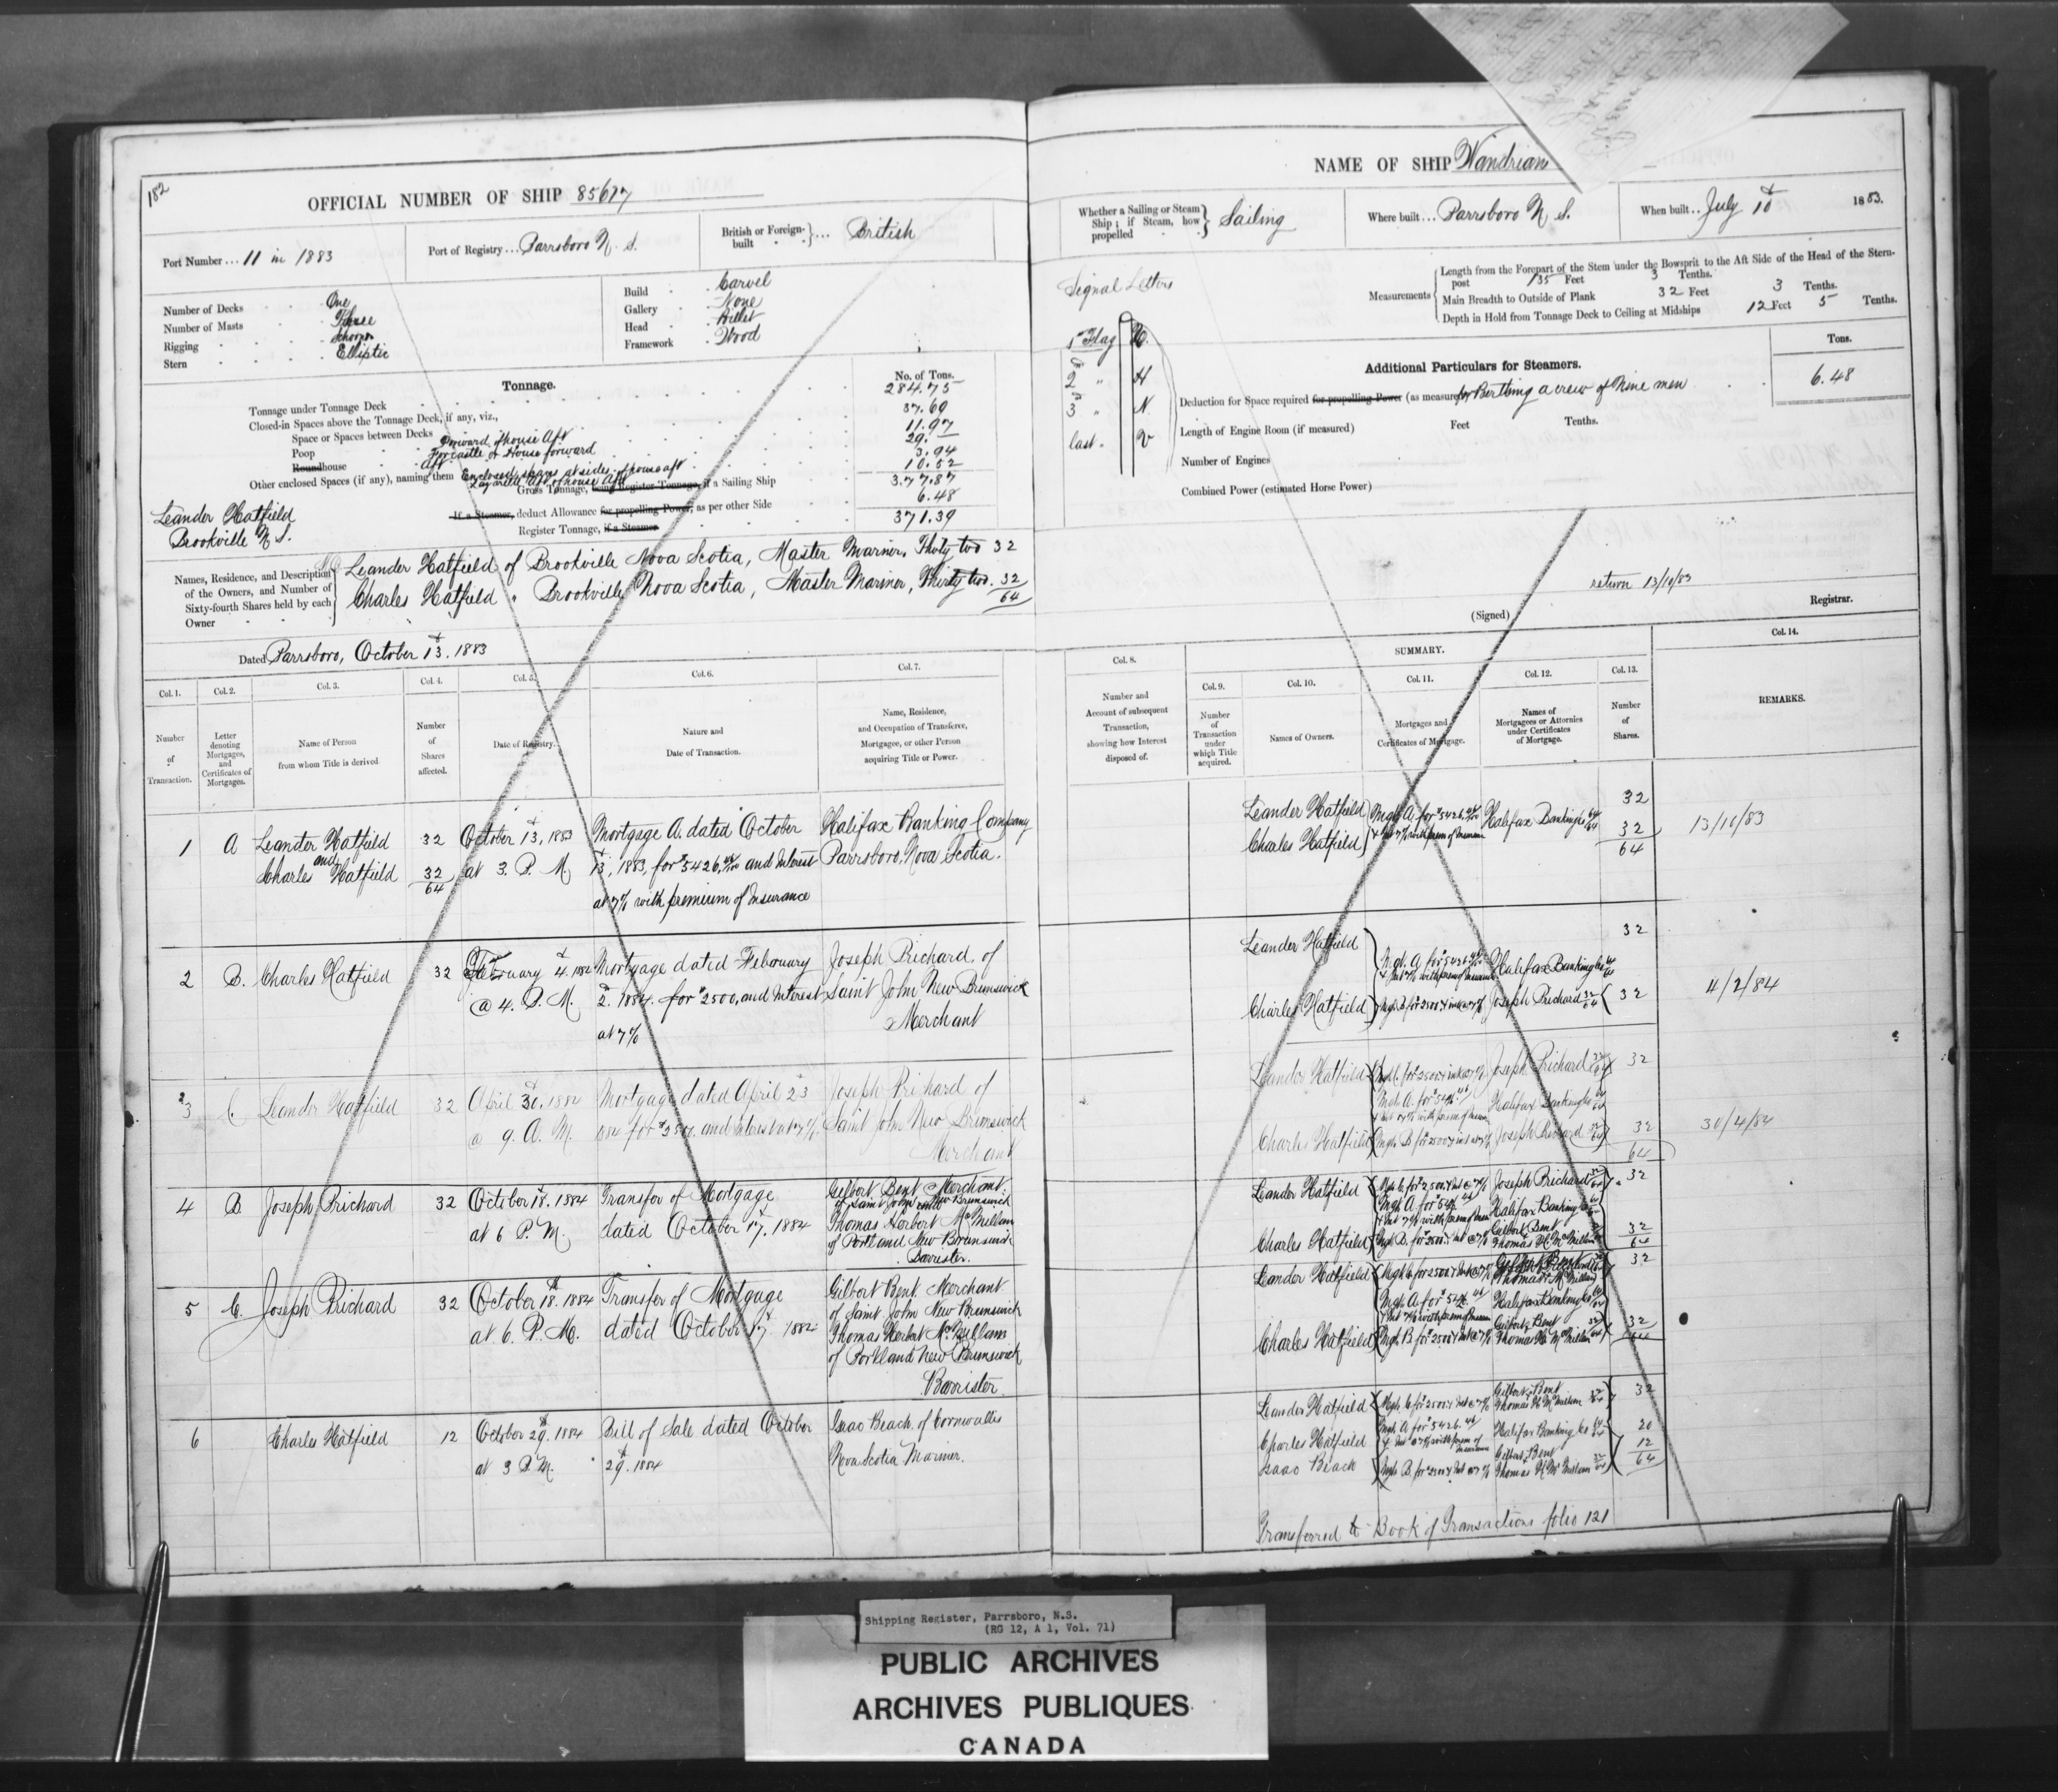 182
OFFICIAL NUMBER OF SHIP 85617
Port Number ... 11 in 1883
Port of Registry ... Parrsboro N. S.
British or Foreign-built } ... British
Number of Decks One
Number of Masts Three
Rigging Schooner
Stern Elliptic
Build Carvel
Gallery None
Head Billet
Framework Wood
Tonnage.
No. of Tons.
Tonnage under Tonnage Deck 284.75
Closed-in Spaces above the Tonnage Deck, if any, viz.,
Space or Spaces between Decks 37.69
Poop Forward of house Aft 11.97
Roundhouse Aft Forcastle & House forward 29.–
Other enclosed Spaces (if any), naming them Enclosed spaces at sides of house aft 3.94
Lazarette Aft of house Aft 10.52
Gross Tonnage, being Register Tonnage, if a Sailing Ship 377.87
If a Steamer, deduct Allowance for propelling Power, as per other Side 6.48
Register Tonnage, if a Steamer 371.39
Leander Hatfield
Brookville N S.
Names, Residence, and Description of the Owners, and Number of Sixty-fourth Shares held by each Owner
Leander Hatfield of Brookville Nova Scotia, Master Mariner, Thirty two 32
Charles Hatfield " Brookville Nova Scotia, Master Mariner, Thirty two. 32
64
Dated Parrsboro, October 13. 1883
Col. 1. Col. 2. Col. 3. Col. 4. Col. 5. Col. 6. Col. 7.
Number of Transaction.
Letter denoting Mortgages, and Certificates of Mortgages.
Name of Person from whom Title is derived
Number of Shares affected.
Date of Registry.
Nature and Date of Transaction.
Name, Residence, and Occupation of Transferee, Mortgagee, or other Person acquiring Title or Power.
1 A Leander Hatfield 32 October 13, 1883 Mortgage A. dated October Halifax Banking Company
and
Charles Hatfield 32 at 3. P. M. 13, 1883, for $5426. and Interest Parrsboro, Nova Scotia.
64
at 7% with premium of Insurance
2 B. Charles Hatfield 32 February 4. Mortgage dated February Joseph Prichard, of
@ 4. P. M. 2. 1884. for $2500, and Interest Saint John New Brunswick
at 7% Merchant
3 C. Leander Hatfield 32 April 30. 1884 Mortgage dated April 23 Joseph Prichard of
@ 9. A. M. and Interest at 7%. Saint John New Brunswick
Merchant
4 B. Joseph Prichard 32 October 18. 1884 Transfer of Mortgage Gilbert Bent, Merchant
at 6 P. M. dated October 17. 1884 of Saint John New Brunswick
Thomas Herbert McMillan
of Portland New Brunswick
Barrister.
5 C. Joseph Prichard 32 October 18. 1884 Transfer of Mortgage Gilbert Bent. Merchant
at 6. P. M. dated October 17. 1884 of Saint John New Brunswick
Thomas Herbert McMillan
of Portland New Brunswick
Barrister
6 Charles Hatfield 12 October 29. 1884 Bill of Sale dated October Isaac Beach. of Cornwallis
at 3 P. M. 29. 1884 Nova Scotia Mariner.
NAME OF SHIP Wandrian
Whether a Sailing or Steam Ship; if Steam, how propelled } Sailing
Where built ... Parrsboro N. S.
When built .. July 10 1883.
Signal Letters
1st Flag W.
2 " H
3 " N.
last. " V
Measurements
Length from the Forepart of the Stem under the Bowsprit to the Aft Side of the Head of the Stern-post 135 Feet 3 Tenths.
Main Breadth to Outside of Plank 32 Feet 3 Tenths.
Depth in Hold from Tonnage Deck to Ceiling at Midships 12 Feet 5 Tenths.
Additional Particulars for Steamers.
Tons.
Deduction for Space required for propelling Power (as measured) for Berthing a crew of Nine men 6.48
Length of Engine Room (if measured) Feet Tenths.
Number of Engines
Combined Power (estimated Horse Power)
return 13/10/83
(Signed) Registrar.
Col. 8. SUMMARY. Col. 14.
Col. 9. Col. 10. Col. 11. Col. 12. Col. 13.
Number and Account of subsequent Transaction, showing how Interest disposed of.
Number of Transaction under which Title acquired.
Names of Owners.
Mortgages and Certificates of Mortgage.
Names of Mortgagees or Attornies under Certificates of Mortgage.
Number of Shares.
REMARKS.
Leander Hatfield Mgh A. for $5426. Halifax Banking Co 32
Charles Hatfield 32 13/10/83
64
Leander Hatfield 32
Mgh. A. for $5426 Halifax Banking Co
Charles Hatfield Mgh. B. for 2500 Joseph Prichard 32 4/2/84
Leander Hatfield Mgh C. for 2500 Joseph Prichard 32
Mgh. A. for Halifax Banking Co
Charles Hatfield Mgh. B. for 2500 Joseph Prichard 32 30/4/84
64
Leander Hatfield Mgh. C. for 2500 Joseph Prichard 32
Mgh A. for Halifax Banking Co
Charles Hatfield Mgh. B. for 2500 Gilbert Bent 32
Thomas H. McMillan 64
Leander Hatfield Mgh C. for 2500 Gilbert Bent 32
Thomas H. McMillan
Mgh. A. for Halifax Banking Co
Charles Hatfield Mgh B. for 2500 Gilbert Bent 32
Thomas H. McMillan 64
Leander Hatfield Mgh. C. for 2500 Gilbert Bent 32
Thomas H. McMillan
Charles Hatfield Mgh. A. for 5426. Halifax Banking Co 20
Isaac Beach Mgh B. for 2500 Gilbert Bent 12
Thomas H. McMillan 64
Transferred to Book of Transactions folio 121
Shipping Register, Parrsboro, N.S.
(RG 12, A 1, Vol. 71)
PUBLIC ARCHIVES
ARCHIVES PUBLIQUES
CANADA